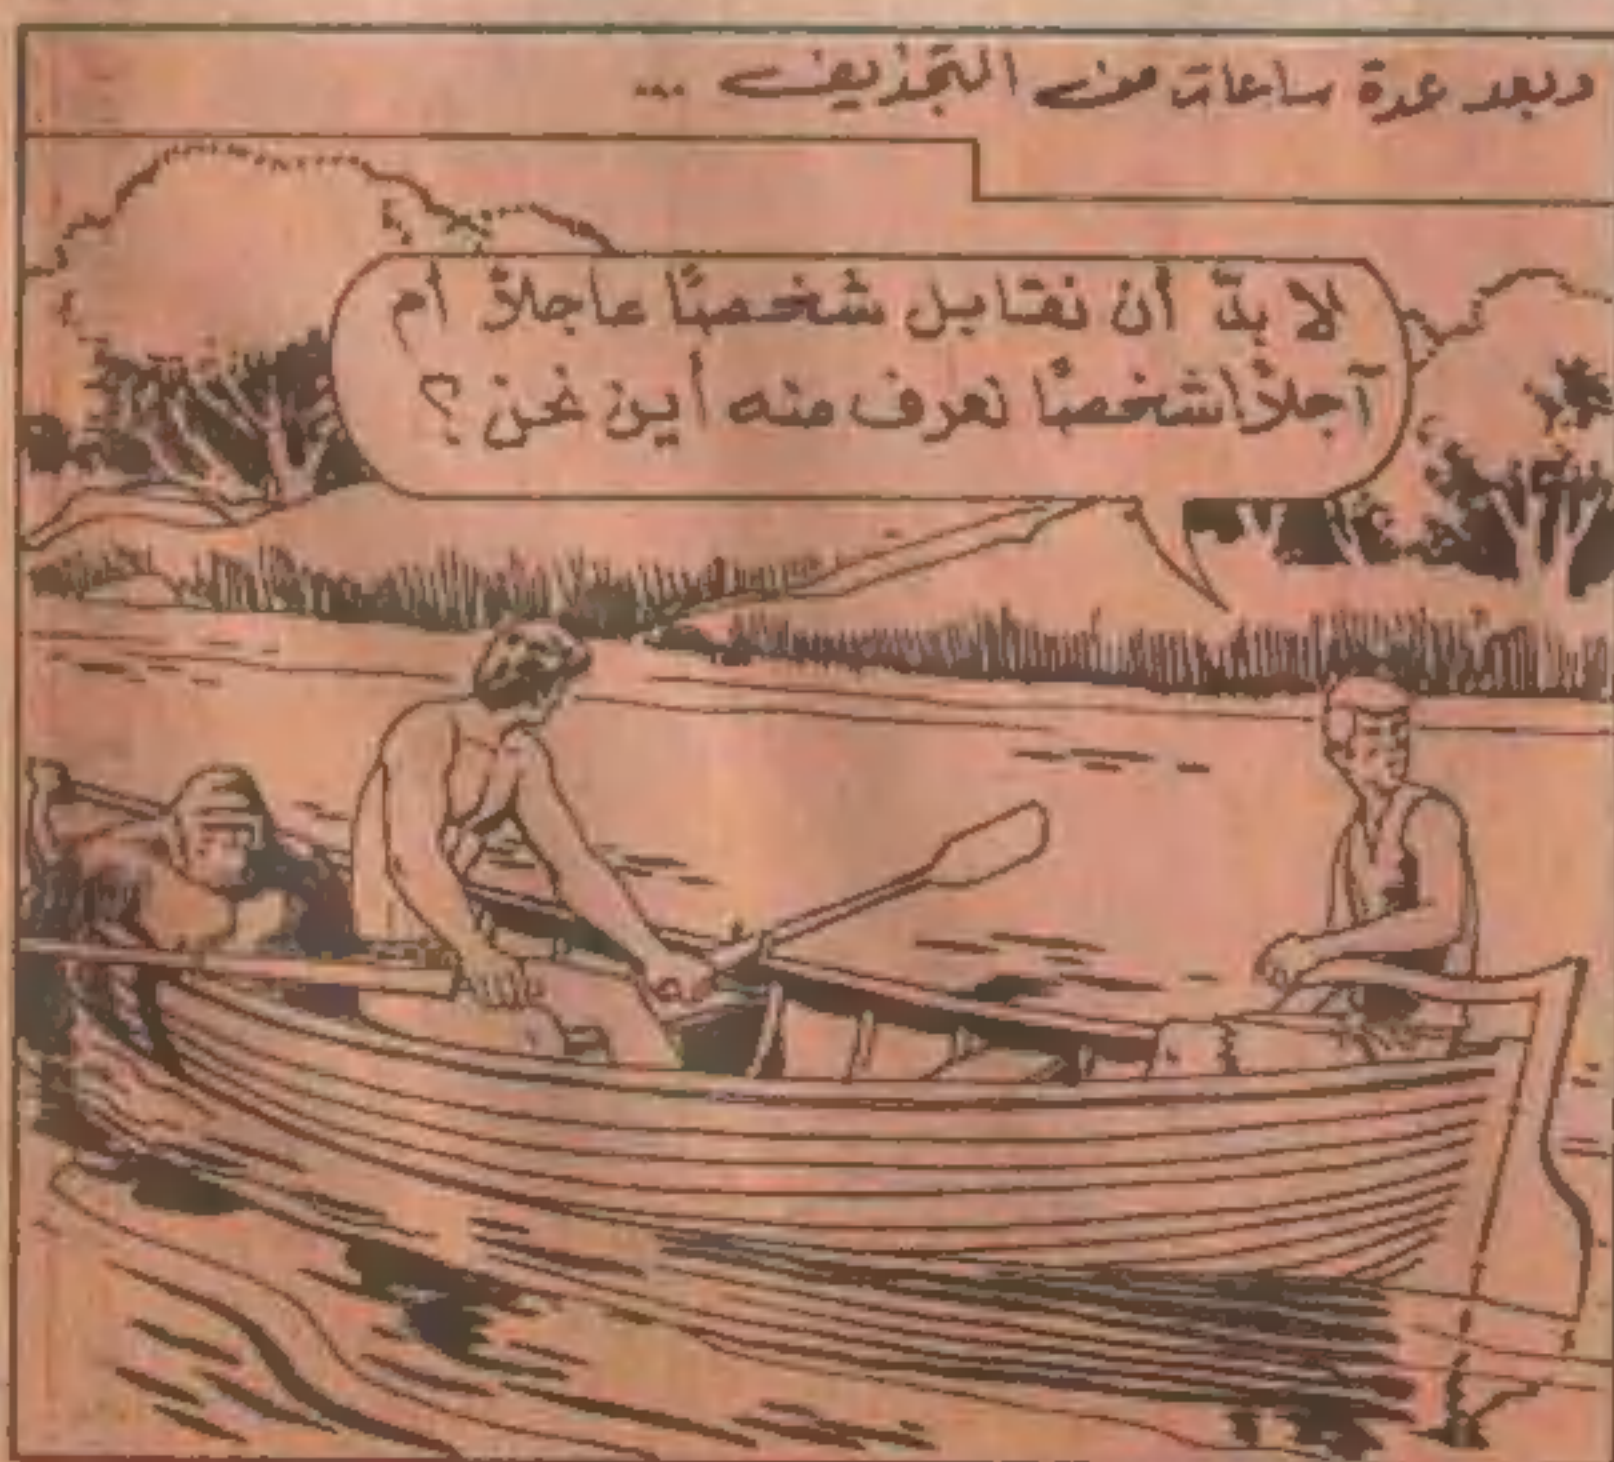 وبعد عدة ساعات من التجذيف ...
لا بدّ أن نقابل شخصًا عاجلاً أم
آجلاً شخصًا نعرف منه أين نحن ؟